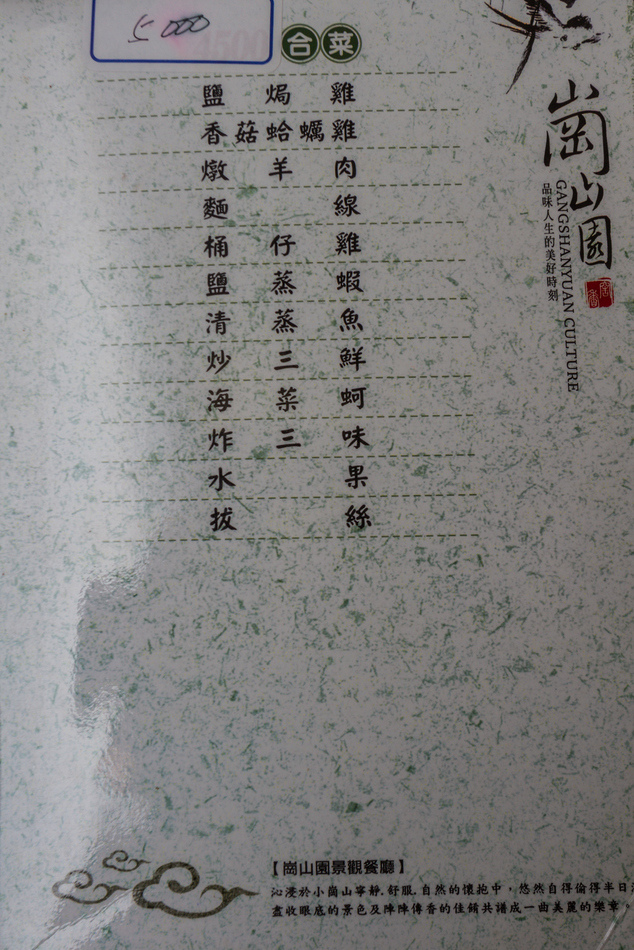 5000
合菜
鹽焗雞
香菇蛤蠣雞
燉羊肉
麵線
桶仔雞
鹽蒸蝦
清蒸魚
炒三鮮
海菜蚵
炸三味
水果
拔絲
崗山園
GANGSHANYUAN CULTURE
品味人生的美好時刻
【崗山園景觀餐廳】
沁漫於小崗山寧靜.舒服.自然的懷抱中，悠然自得偷得半日
盡收眼底的景色及陣陣傳香的佳餚共譜成一曲美麗的樂章。